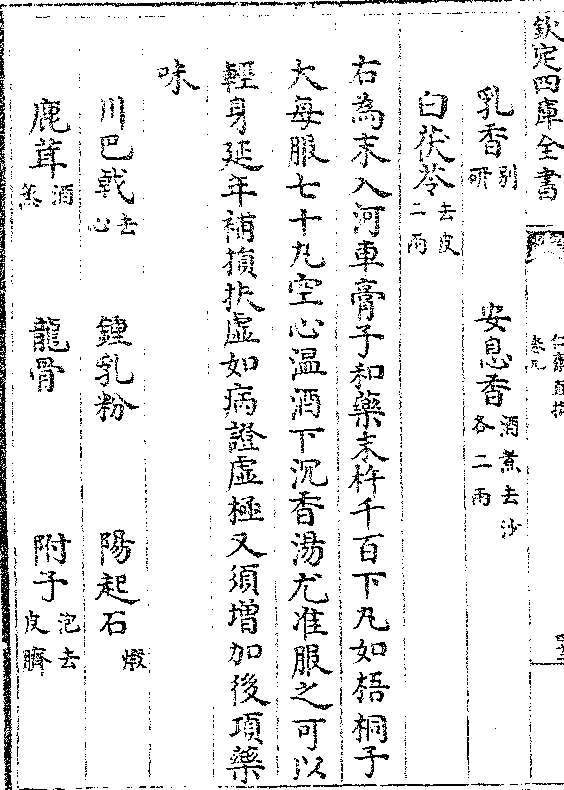 欽定四庫全書
乳香 別研 安息香 酒煮去沙各二兩
白茯苓 去皮二兩
右為末入河車膏子和藥末杵千百下丸如梧桐子
大每服七十丸空心温酒下沉香湯尤准服之可以
輕身延年補損扶虛如病證虛極又須增加後項藥
味
川巴戟 去心 鍾乳粉 陽起石 煅
鹿茸 酒蒸 龍骨 附子 泡去皮臍